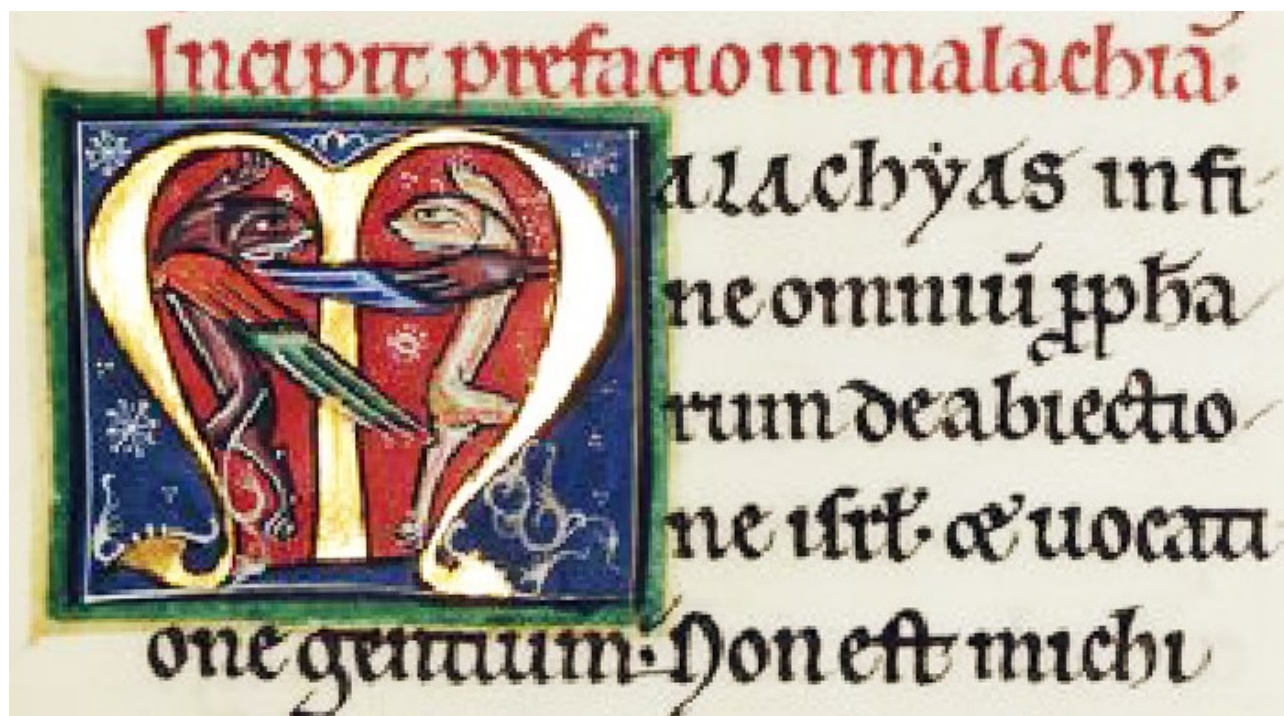 Incipit prefacio in malachiā.
Malachẏas in fi
ne omniū ꝓph̄a
rum de abiectio
ne iſrł. & uocati
one gentium. Non eſt michi